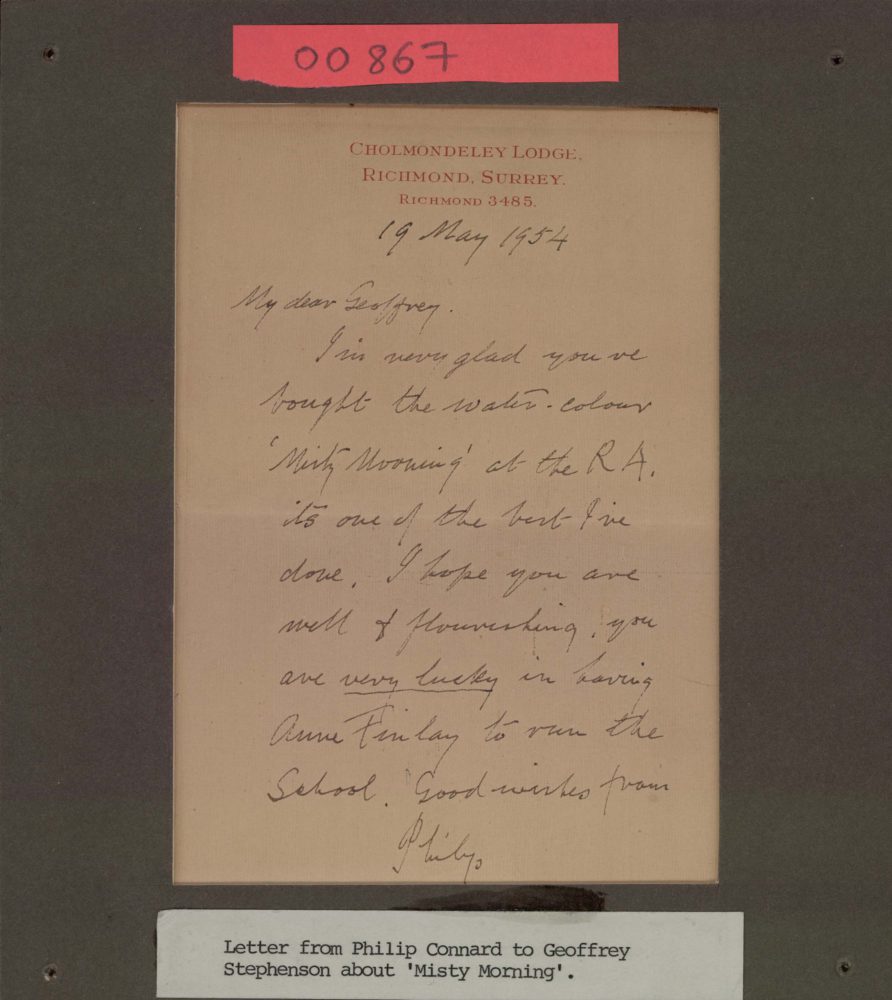 00867
CHOLMONDELEY LODGE,
RICHMOND, SURREY.
RICHMOND 3485.
19 May 1954
My dear Geoffrey.
I'm very glad you've
bought the water-colour
'Misty Morning' at the R A.
its one of the best I've
done. I hope you are
well & flourishing, you
are very lucky in having
Anne Finlay to run the
School. Good wishes from
Philip
Letter from Philip Connard to Geoffrey
Stephenson about 'Misty Morning'.